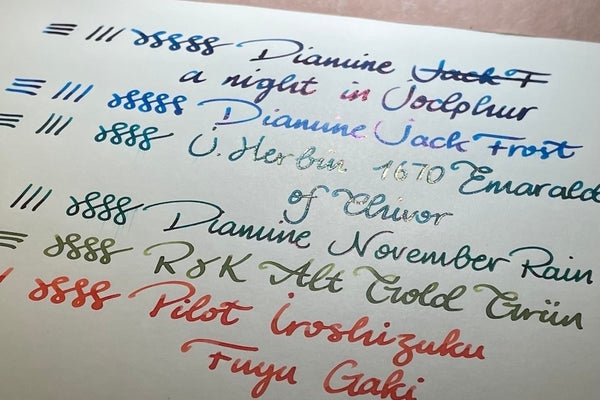 Diamine Jack F
a night in Jodphur
Diamine Jack Frost
J. Herbin 1670 Emarald
of Chivor
Diamine November Rain
R&K Alt Gold Grün
Pilot Iroshizuku
Fuyu Gaki